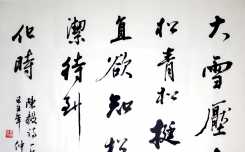 大雪壓
松青松挺
直欲知松
潔待到
化時
陳毅詩